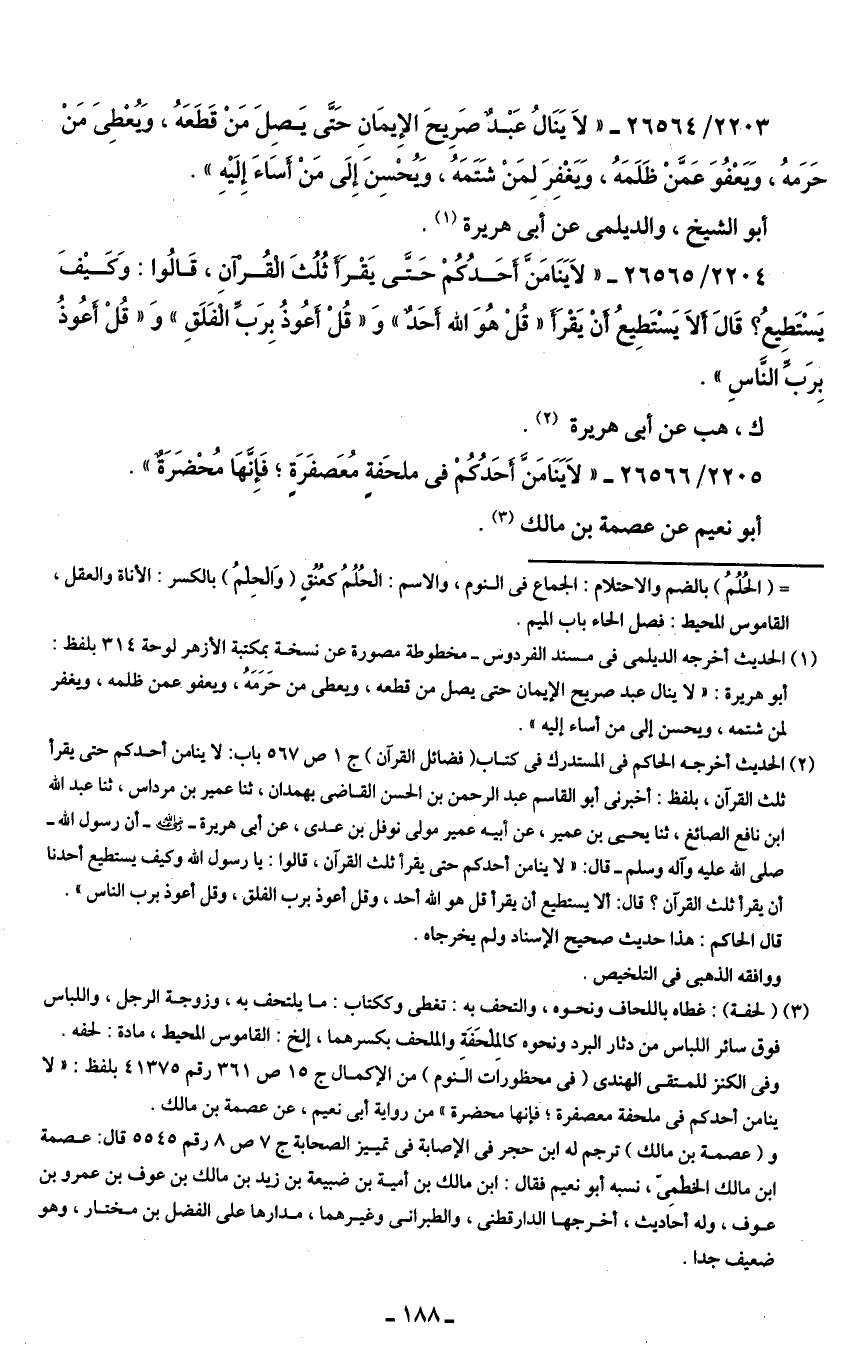 ٢٦٥٦٤/٢٢٠٣ ـ « لاَ يَنَالُ عَبْدٌ صَرِيحَ الإِيمَانِ حَتَّى يَـصِلَ مَنْ قَطَعَهُ ، وَيُعْطِىَ مَنْ
حَرَمَهُ ، وَيَعْفُوَ عَمَّنْ ظَلَمَهُ ، وَيَغْفِرَ لِمَنْ شَتَمَهُ ، وَيُحْسِنَ إِلَى مَنْ أَسَاءَ إِلَيْهِ » .
أبو الشيخ ، والديلمى عن أبى هريرة (١) .
٢٦٥٦٥/٢٢٠٤ ـ « لاَيَنَامَنَّ أَحَـدُكُمْ حَـتَّـى يَقْـرَأَ ثُلُثَ الْقُـرْآنِ ، قَـالُوا : وَكَـيْـفَ
يَسْتَطِيعُ؟ قَالَ أَلاَ يَسْتَطِيعُ أَنْ يَقْرَأَ « قُلْ هُوَ الله أَحَدٌ » وَ « قُلْ أَعُوذُ بِرَبِّ الْفَلَقِ » وَ « قُلْ أَعُوذُ
بِرَبِّ النَّاسِ » .
ك ، هب عن أبى هريرة (٢) .
٢٦٥٦٦/٢٢٠٥ ـ « لاَيَنَامَنَّ أَحَدُكُمْ فى ملحَفةٍ مُعَصفَرَةٍ ؛ فَإِنَّهَا مُحْضَرَةٌ » .
أبو نعيم عن عصمة بن مالك (٣) .
= ( الحُلُمُ ) بالضم والاحتلام : الجماع فى النوم ، والاسم : الْحُلُمُ كَعُنُقٍ ( وَالحِلْمُ ) بالكسر : الأناة والعقل ،
القاموس المحيط : فصل الحاء باب الميم .
(١) الحديث أخرجه الديلمى فى مسند الفردوس ـ مخطوطة مصورة عن نسخة بمكتبة الأزهر لوحة ٣١٤ بلفظ :
أبو هريرة : « لا ينال عبد صريح الإيمان حتى يصل من قطعه ، ويعطى من حَرَمَهُ ، ويعفو عمن ظلمه ، ويغفر
لمن شتمه ، ويحسن إلى من أساء إليه » .
(٢) الحديث أخرجـه الحاكم فى المستدرك فى كتـاب( فضائل القرآن ) ج ١ ص ٥٦٧ باب: لا ينامن أحـدكم حتى يقرأ
ثلث القرآن ، بلفظ : أخبرنى أبو القاسم عبد الرحمن بن الحسن القـاضى بهمدان ، ثنا عمير بن مرداس ، ثنا عبد الله
ابن نافع الصائغ ، ثنا يحيـى بن عمير ، عن أبيـه عمير مولى نوفل بن عـدى ، عن أبى هريرة ـ رضي الله عنه ـ أن رسول الله ـ
صلى الله عليه وآله وسلم ـ قال: « لا ينامن أحدكم حتى يقرأ ثلث القرآن ، قالوا : يا رسول الله وكيف يستطيع أحدنا
أن يقرأ ثلث القرآن ؟ قال: ألا يستطيع أن يقرأ قل هو الله أحد ، وقل أعوذ برب الفلق ، وقل أعوذ برب الناس » .
قال الحاكم : هذا حديث صحيح الإسناد ولم يخرجاه .
ووافقه الذهبى فى التلخيص .
(٣) ( لحفـة) : غطاه باللحاف ونحـوه ، والتحف به : تغطى وككتاب : مـا يلتحف به ، وزوجـة الرجل ، واللباس
فوق سائر اللباس من دثار البرد ونحوه كالمِلْحَفَةِ والملحف بكسرهما ، إلخ : القاموس المحيط ، مادة : لحفه .
وفى الكنز للمـتقـى الهندى ( فى محظورات النـوم ) من الإكمـال ج ١٥ ص ٣٦١ رقم ٤١٣٧٥ بلفظ : « لا
ينامن أحدكم فى ملحفة معصفرة ؛ فإنها محضرة » من رواية أبى نعيم ، عن عصمة بن مالك .
و ( عصمـة بن مالك ) ترجم له ابن حجر فى الإصابة فى تمييز الصحابة ج ٧ ص ٨ رقم ٥٥٤٥ قال: عـصمة
ابن مالك الخَطْمِىّ ، نسبه أبو نعيم فقال : ابن مالك بن أمية بن ضبيعة بن زيد بن مالك بن عوف بن عمرو بن
عـوف ، وله أحاديث ، أخـرجهـا الدارقطنى ، والطبرانى وغيـرهما ، مـدارها على الفضل بن مـختـار ، وهو
ضعيف جدا .
ـ ١٨٨ ـ